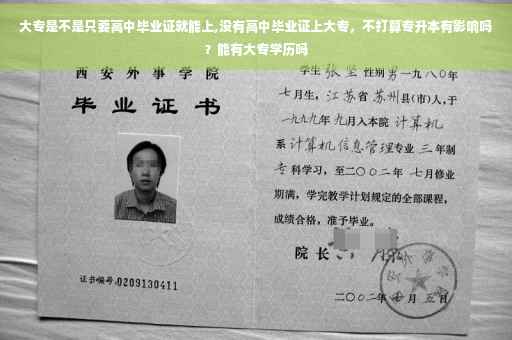 大专是不是只要高中毕业证就能上,没有高中毕业证上大专，不打算专升本有影响吗
？能有大专学历吗
西安外事学院
毕业证书
证书编号:0209130411
学生 张坚 性别 男 一九八〇年
七月生，江苏省 苏州县(市)人，于
一九九九年 九月入本院 计算机
系 计算机信息管理专业 三年制
专科学习，至二〇〇二年 七月修业
期满，学完教学计划规定的全部课程，
成绩合格，准予毕业。
院长
二〇〇二年 七月 五日